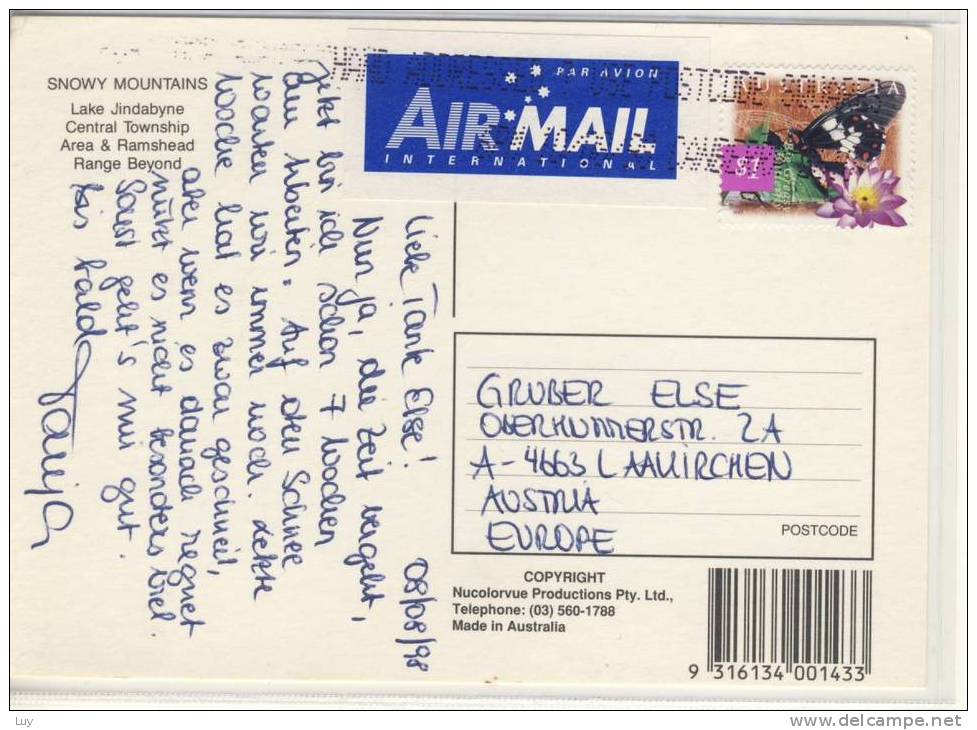 SNOWY MOUNTAINS
Lake Jindabyne
Central Township
Area & Ramshead
Range Beyond
PAR AVION
AIR MAIL
INTERNATIONAL
HAND ADDRESSED USE POSTCODE SQUARES
$1
Liebe Tante Else! 08/08/98
Nun ja, die Zeit vergeht,
jetzt bin ich schon 7 Wochen
am Arbeiten. Auf den Schnee
warten wir immer noch. Letzte
Woche hat es zwar geschneit,
aber wenn es danach regnet
nützt es nicht besonders viel.
Sonst geht's mir gut.
Bis bald
Tanja
GRUBER ELSE
A-4663 LAAKIRCHEN
AUSTRIA
EUROPE
POSTCODE
COPYRIGHT
Nucolorvue Productions Pty. Ltd.,
Telephone: (03) 560-1788
Made in Australia
9 316134 001433
Luy
www.delcampe.net